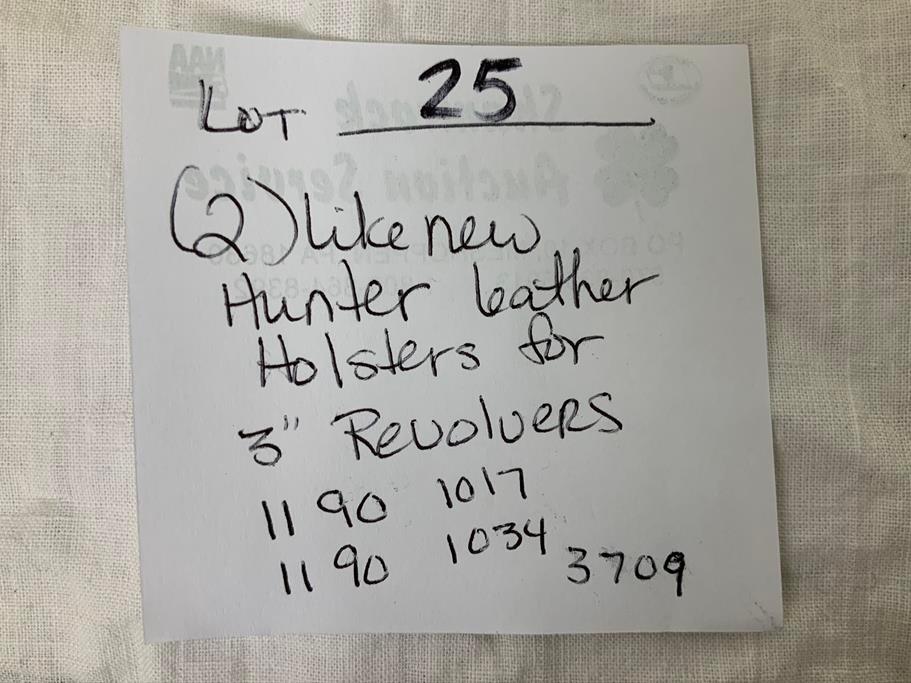 LOT 25
(2) like new
Hunter leather
Holsters for
3" Revolvers
1190 1017
1190 1034
3709